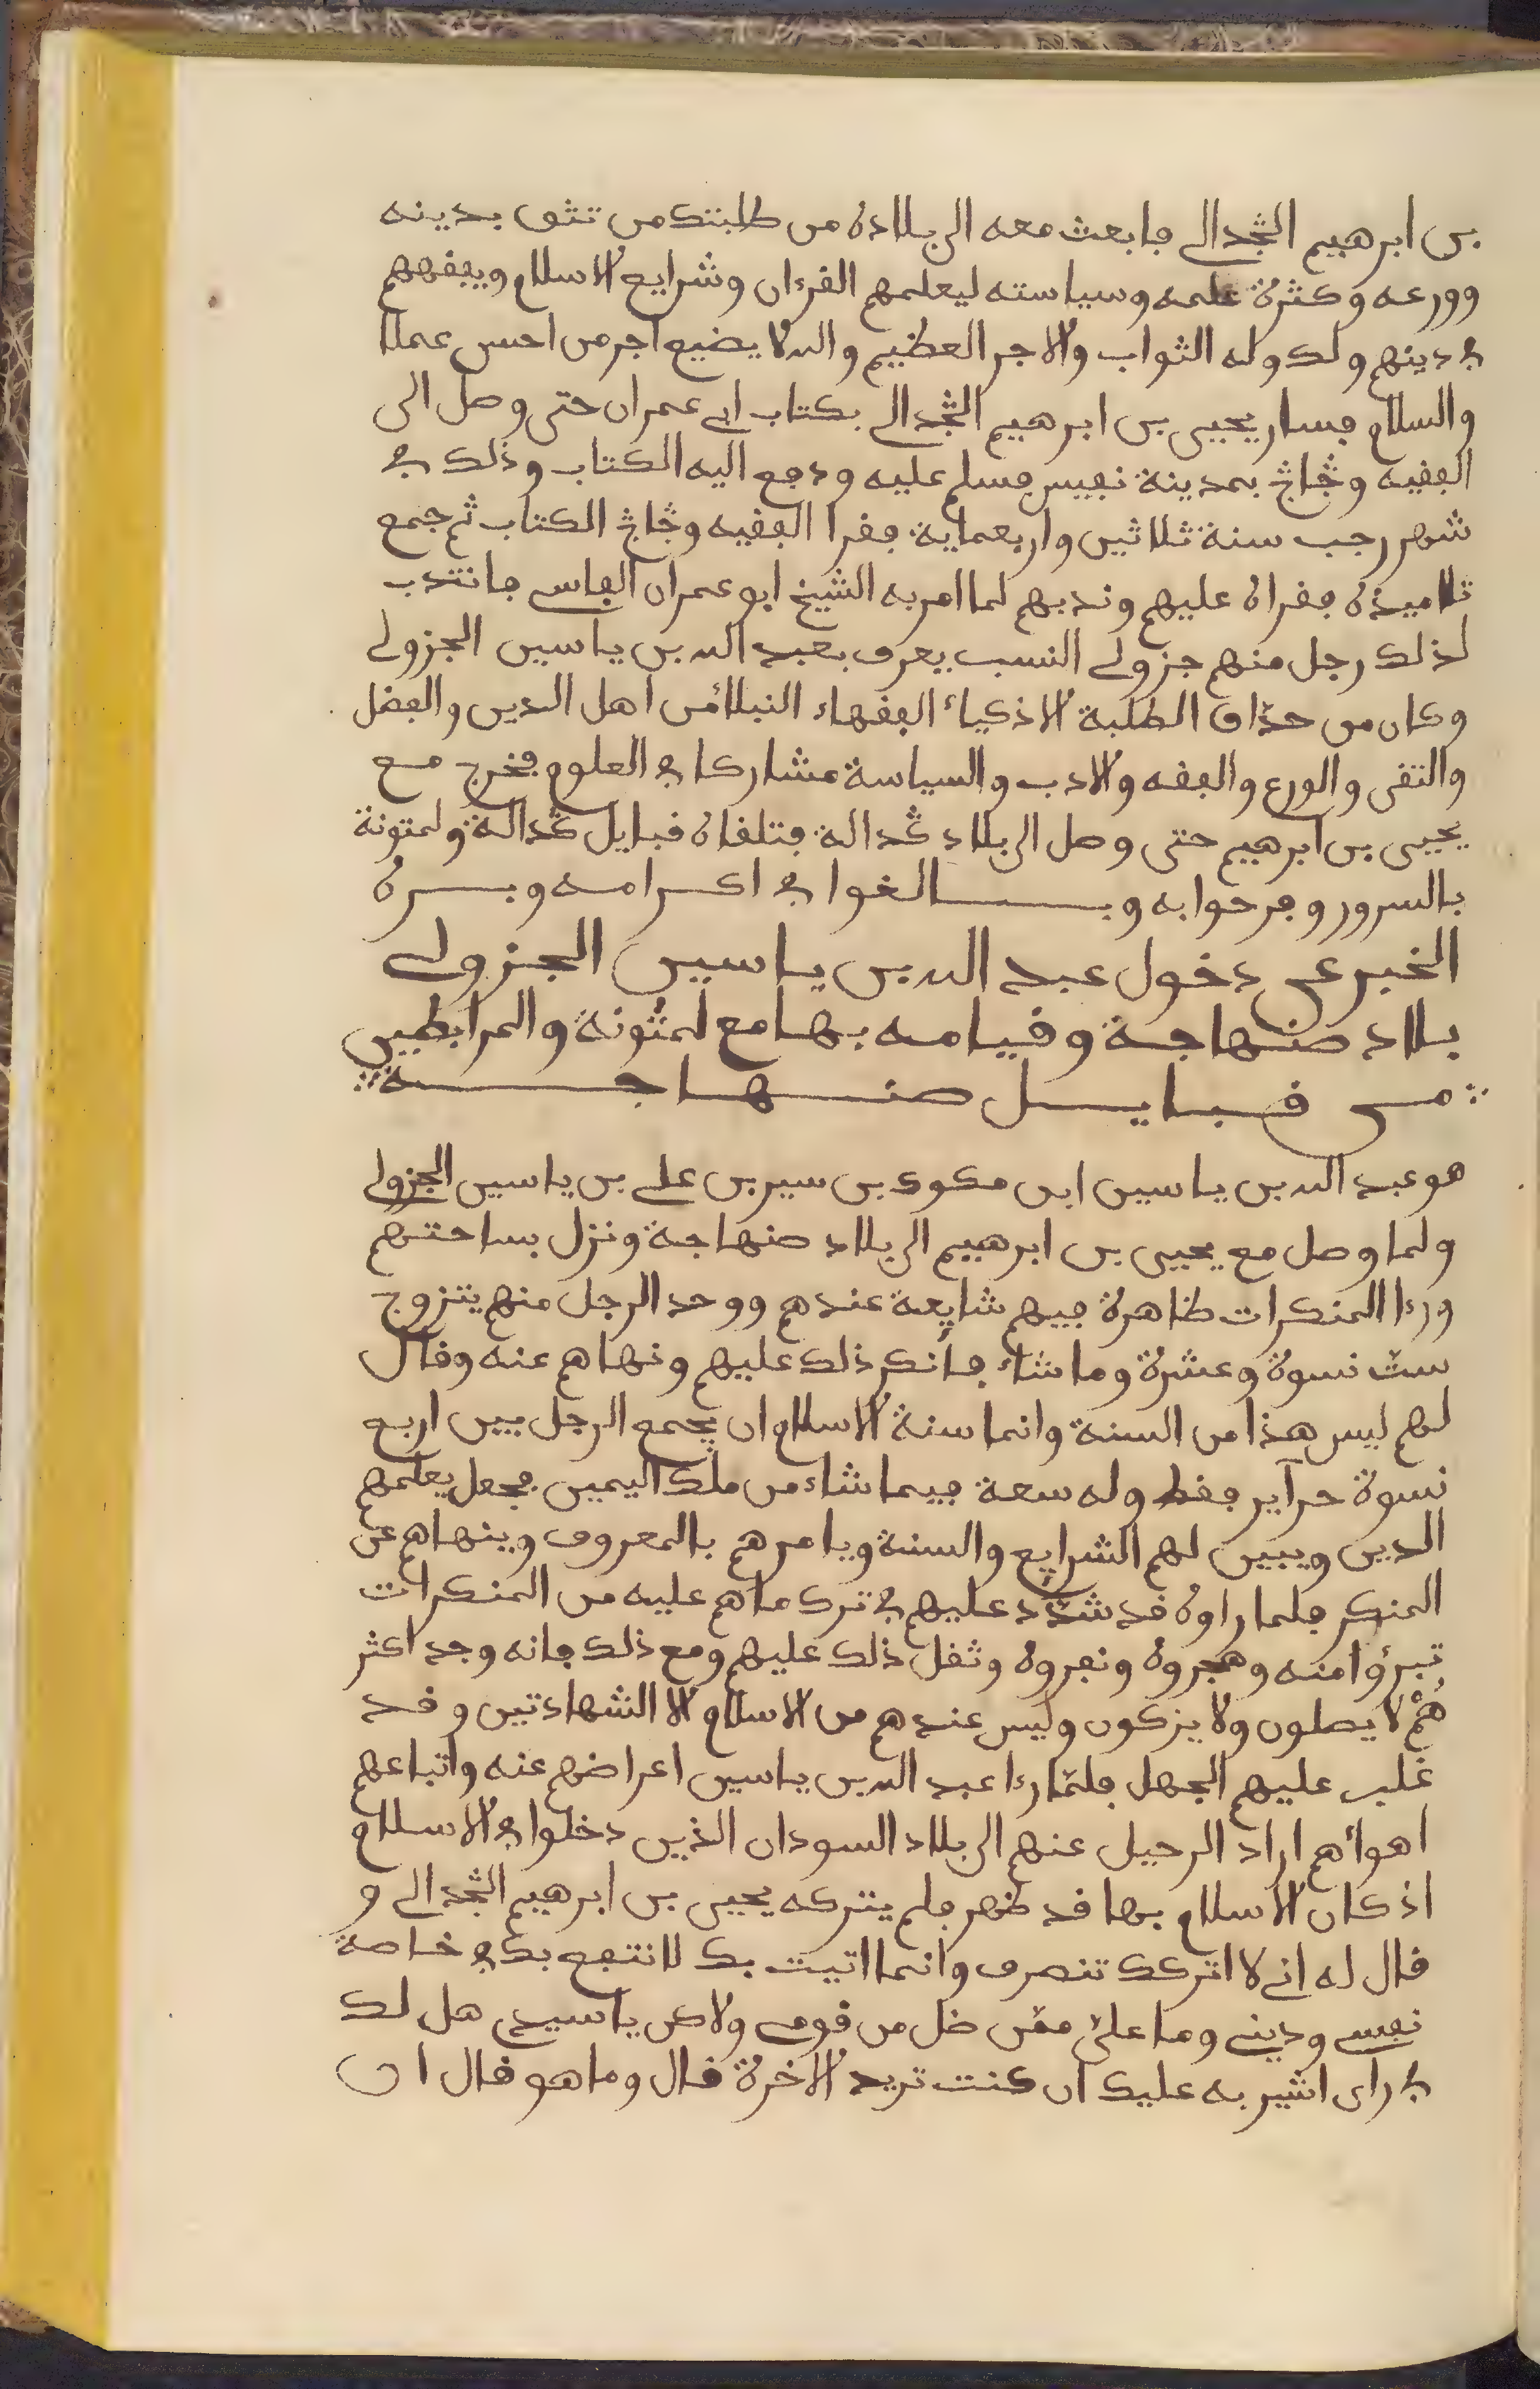 بن ابرهيم الڭدالي فابعث معه الى بلاده من طلبتك من تثق بدينه
وورعه وكثرة علمه وسياسته ليعلمهم القرءان وشرايع الاسلام ويفقههم
في دينهم ولك وله الثواب والاجر العظيم والله لا يضيع اجر من احسن عملا
والسلام فسار يحيى بن ابرهيم الڭدالي بكتاب ابي عمران حتى وصل الى
الفقيه وڭاڭ بمدينة نفيس فسلم عليه ودفع اليه الكتاب وذلك في
شهر رجب سنة ثلاثين واربعماية فقرا الفقيه وڭاڭ الكتاب ثم جمع
تلاميذه فقراه عليهم وندبهم لما امر به الشيخ ابو عمران الفاسي فانتدب
لذلك رجل منهم جزولي النسب يعرف بعبد الله بن ياسين الجزولي
وكان من حذاق الطلبة الاذكياء الفقهاء النبلاء من اهل الدين والفضل
والتقى والورع والفقه والادب والسياسة مشاركا في العلوم فخرج مع
يحيى بن ابرهيم حتى وصل الى بلاد ڭدالة فتلقاه قبايل ڭدالة ولمتونة
بالسرور وفرحوا به وبالغوا في اكرامه وبره
الخبر عن دخول عبد الله بن ياسين الجزولي
بلاد صنهاجة وقيامه بها مع لمتونة والمرابطين
من قبايل صنهاجة
هو عبد الله بن ياسين ابن مكوك بن سير بن علي بن ياسين الجزولي
ولما وصل مع يحيى بن ابرهيم الى بلاد صنهاجة ونزل بساحتهم
ورءا المنكرات ظاهرة فيهم شايعة عندهم ووجد الرجل منهم يتزوج
ست نسوة وعشرة وما شاء فأنكر ذلك عليهم ونهاهم عنه وقال
لهم ليس هذا من السنة وانما سنة الاسلام ان يجمع الرجل بين اربع
نسوة حرآير فقط وله سعة فيما شاء من ملك اليمين فجعل يعلمهم
الدين ويبين لهم الشرايع والسنة ويامرهم بالمعروف وينهاهم عن
المنكر فلما راوه قد شدّد عليهم في ترك ما هم عليه من المنكرات
تبرؤا منه وهجروه ونفروه وثقل ذلك عليهم ومع ذلك فانه وجد اكثر
هُمْ لا يصلون ولا يزكون وليس عندهم من الاسلام الا الشهادتين وقد
غلب عليهم الجهل فلمّا رءا عبد الله بن ياسين اعراضهم عنه واتباعهم
اهواءهم اراد الرحيل عنهم الى بلاد السودان الذين دخلوا في الاسلام
اذ كان الاسلام بها قد ظهر فلم يتركه يحيى بن ابرهيم الڭدالي و
قال له اني لا اتركك تنصرف وانما اتيت بك لانتفع بك في خاصة
نفسي وديني وما عليّ ممّن ضل من قومي ولاكن يا سيدي هل لك
في راى اشير به عليك ان كنت تريد الاخرة قال وما هو قال ان